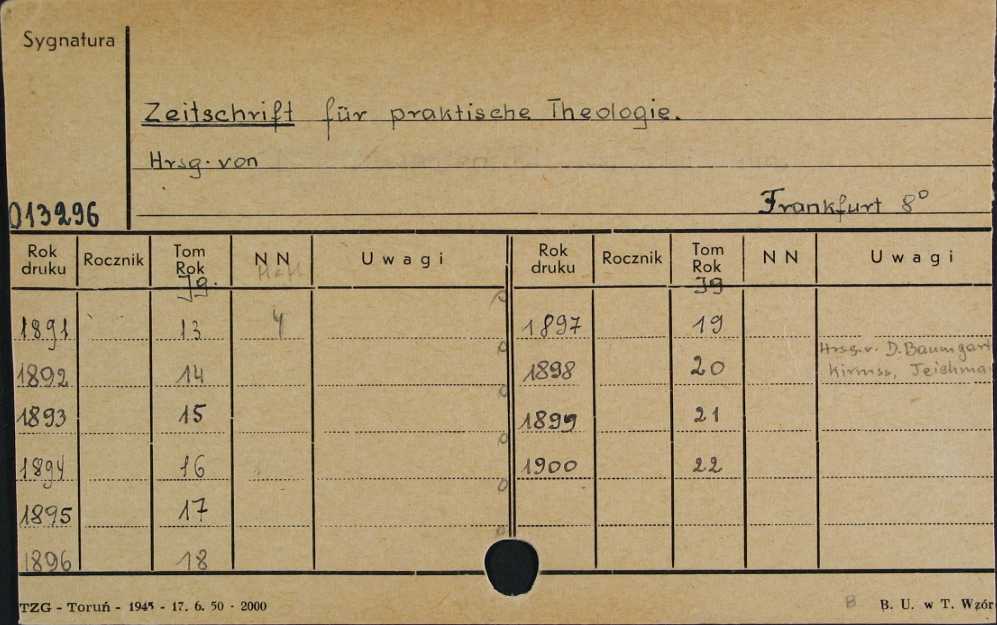 Sygnatura
Zeitschrift für praktische Theologie.
Hrsg. von
Frankfurt 8°
013296
Rok druku Rocznik Tom Rok NN Uwagi Rok druku Rocznik Tom Rok NN Uwagi
Jg. Heft Jg
1891 13 4 1897 19
1892 14 1898 20 Hrsg. v. D. Baumgart
Kirmss, Teichma
1893 15 1899 21
1894 16 1900 22
1895 17
1896 18
TZG - Toruń - 1945 - 17. 6. 50 - 2000 B B. U. w T. Wzór